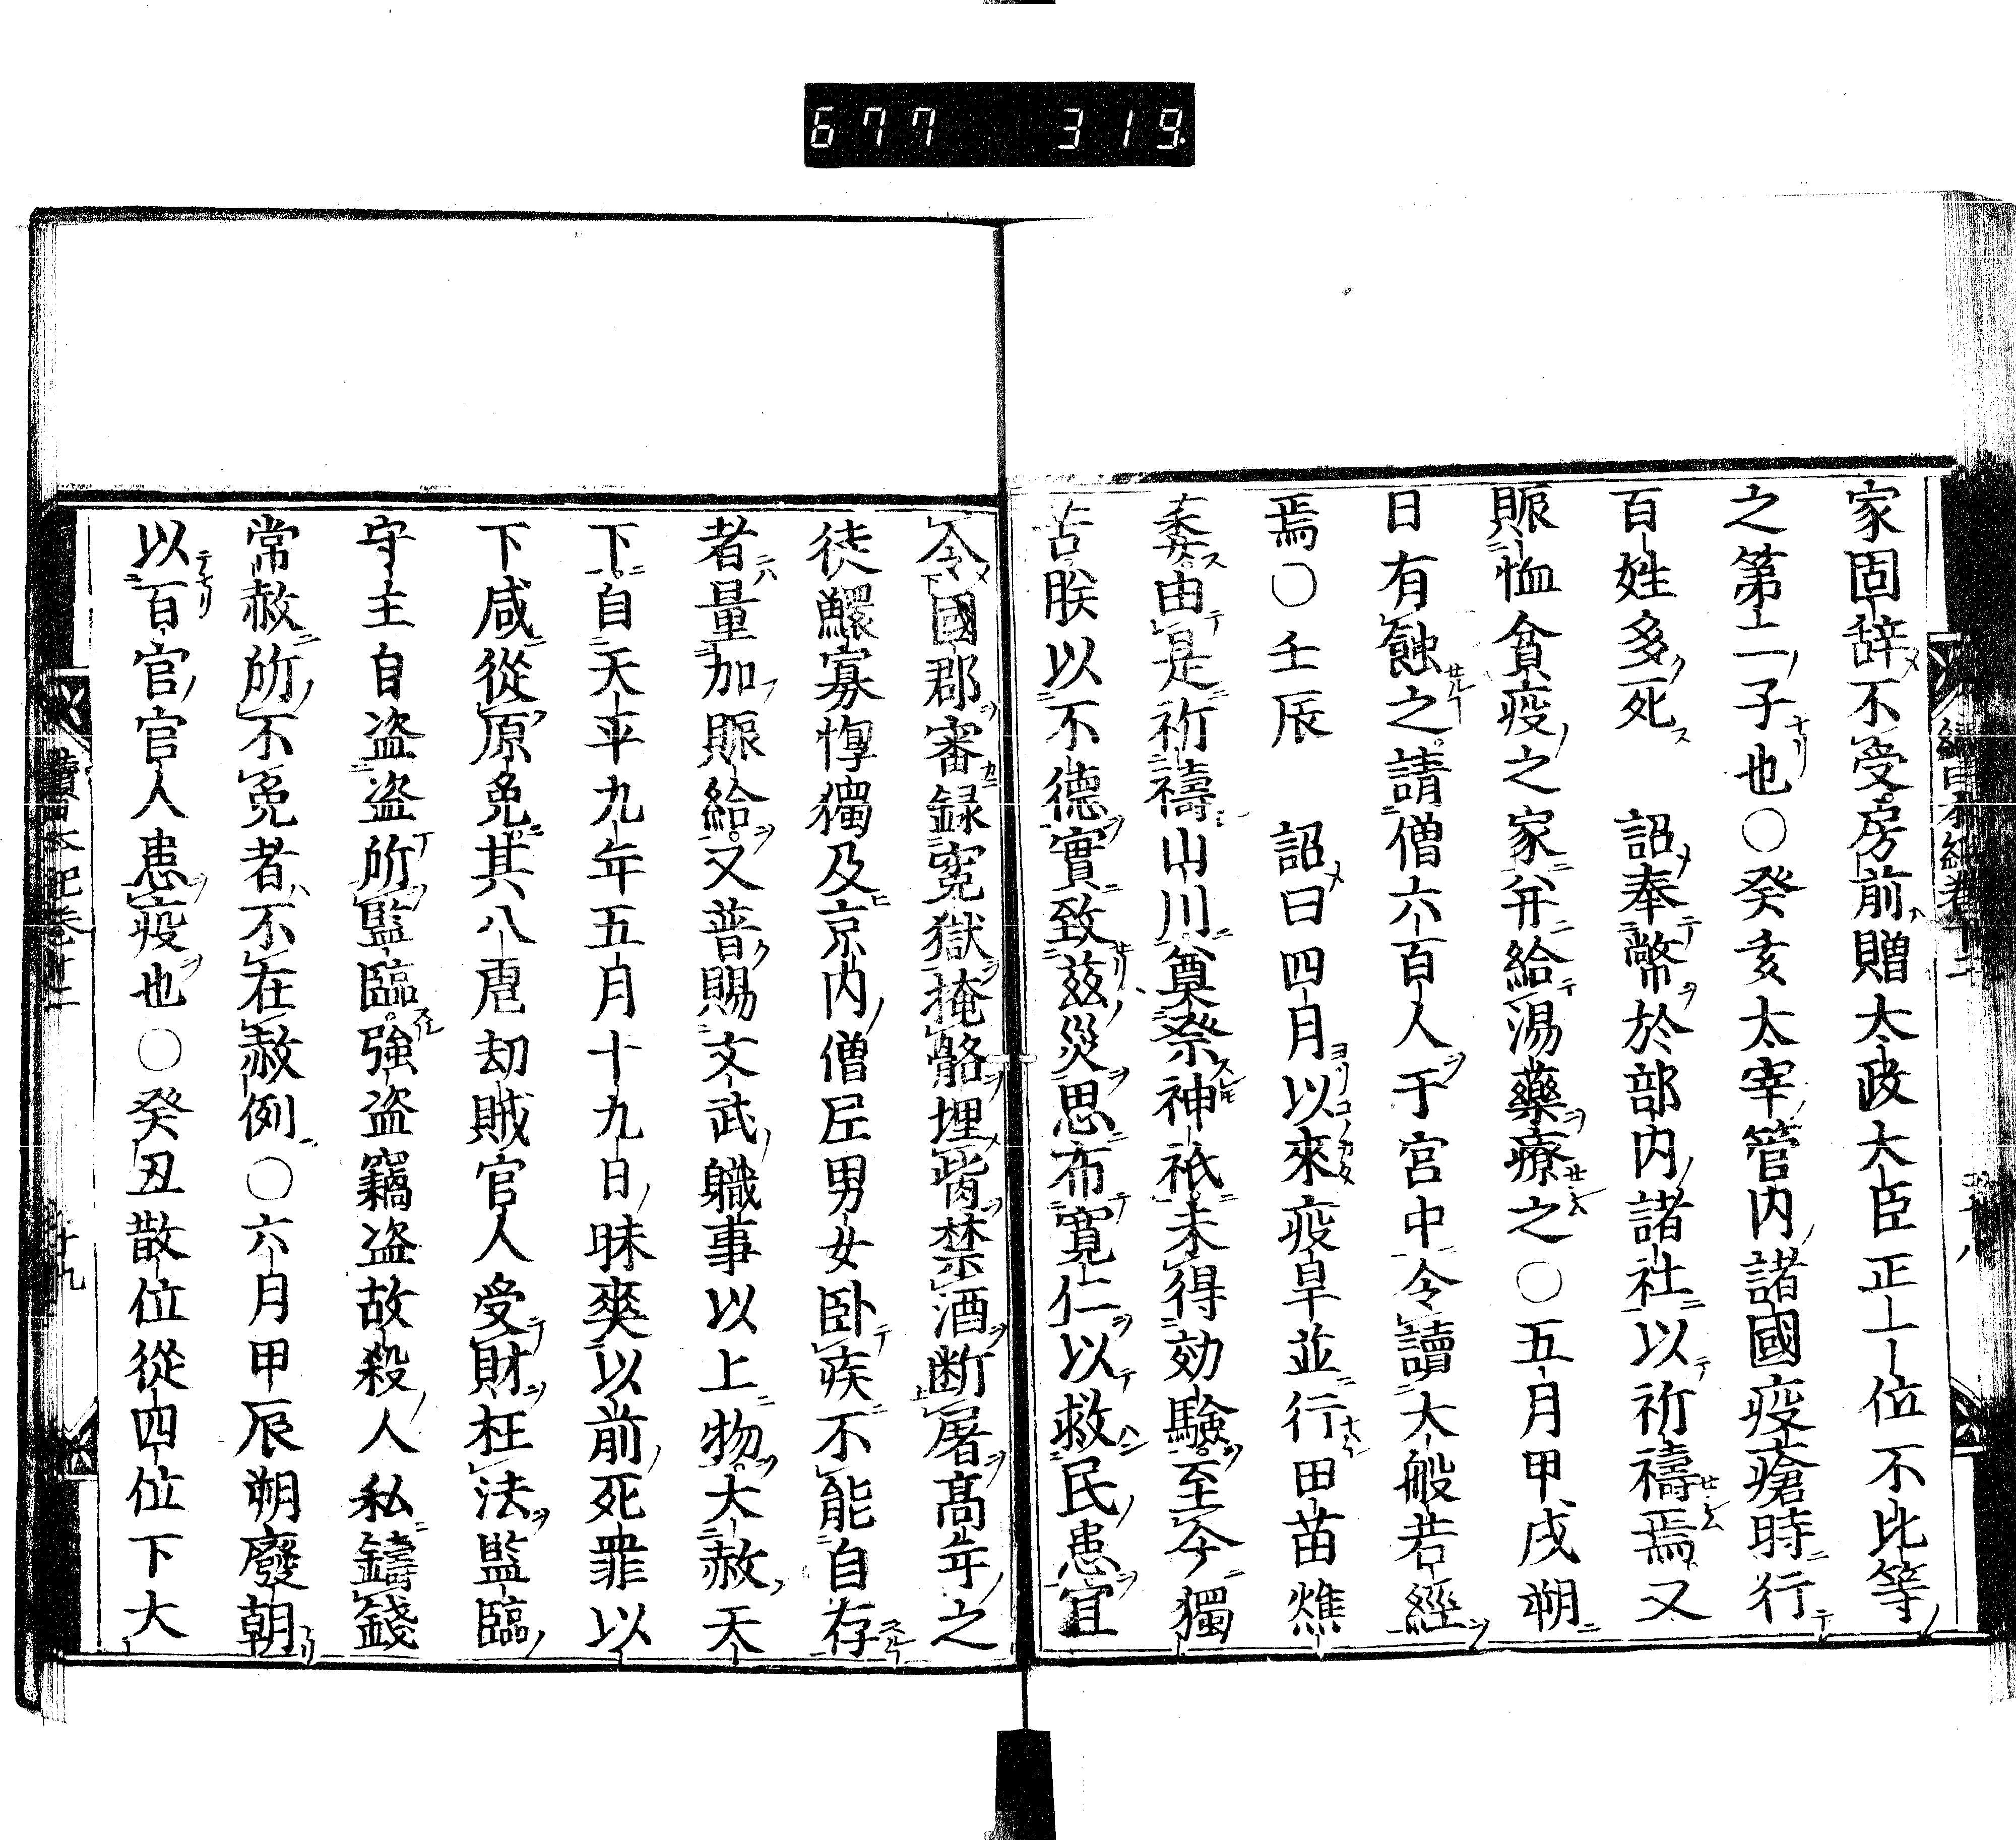 677 319
家固辞不受房前贈太政大臣正一位不比等
之第二子也○癸亥太宰管内諸國疫瘡時行
百姓多死 詔奉幣於部内諸社以祈禱焉又
賑恤貧疫之家并給湯藥療之○五月甲戌朔
日有蝕之請僧六百人于宮中令讀大般若經
焉○壬辰 詔曰四月以來疫旱並行田苗燋
萎由是祈禱山川奠祭神祇未得効驗至今獨
苦朕以不德實致茲災思布寬仁以救民患宜
令國郡審録寃獄掩骼埋胔禁酒断屠髙年之
徒鰥寡惸獨及京内僧尼男女卧疾不能自存
者量加賑給又普賜文武軄事以上物大赦天
下自天平九年五月十九日昧爽以前死罪以
下咸從原免其八虐劫賊官人受財枉法監臨
守主自盗盗所監臨強盗竊盗故殺人私鑄錢
常赦所不免者不在赦例○六月甲辰朔廢朝
以百官官人患疫也○癸丑散位從四位下大
續日本紀卷十二 十九